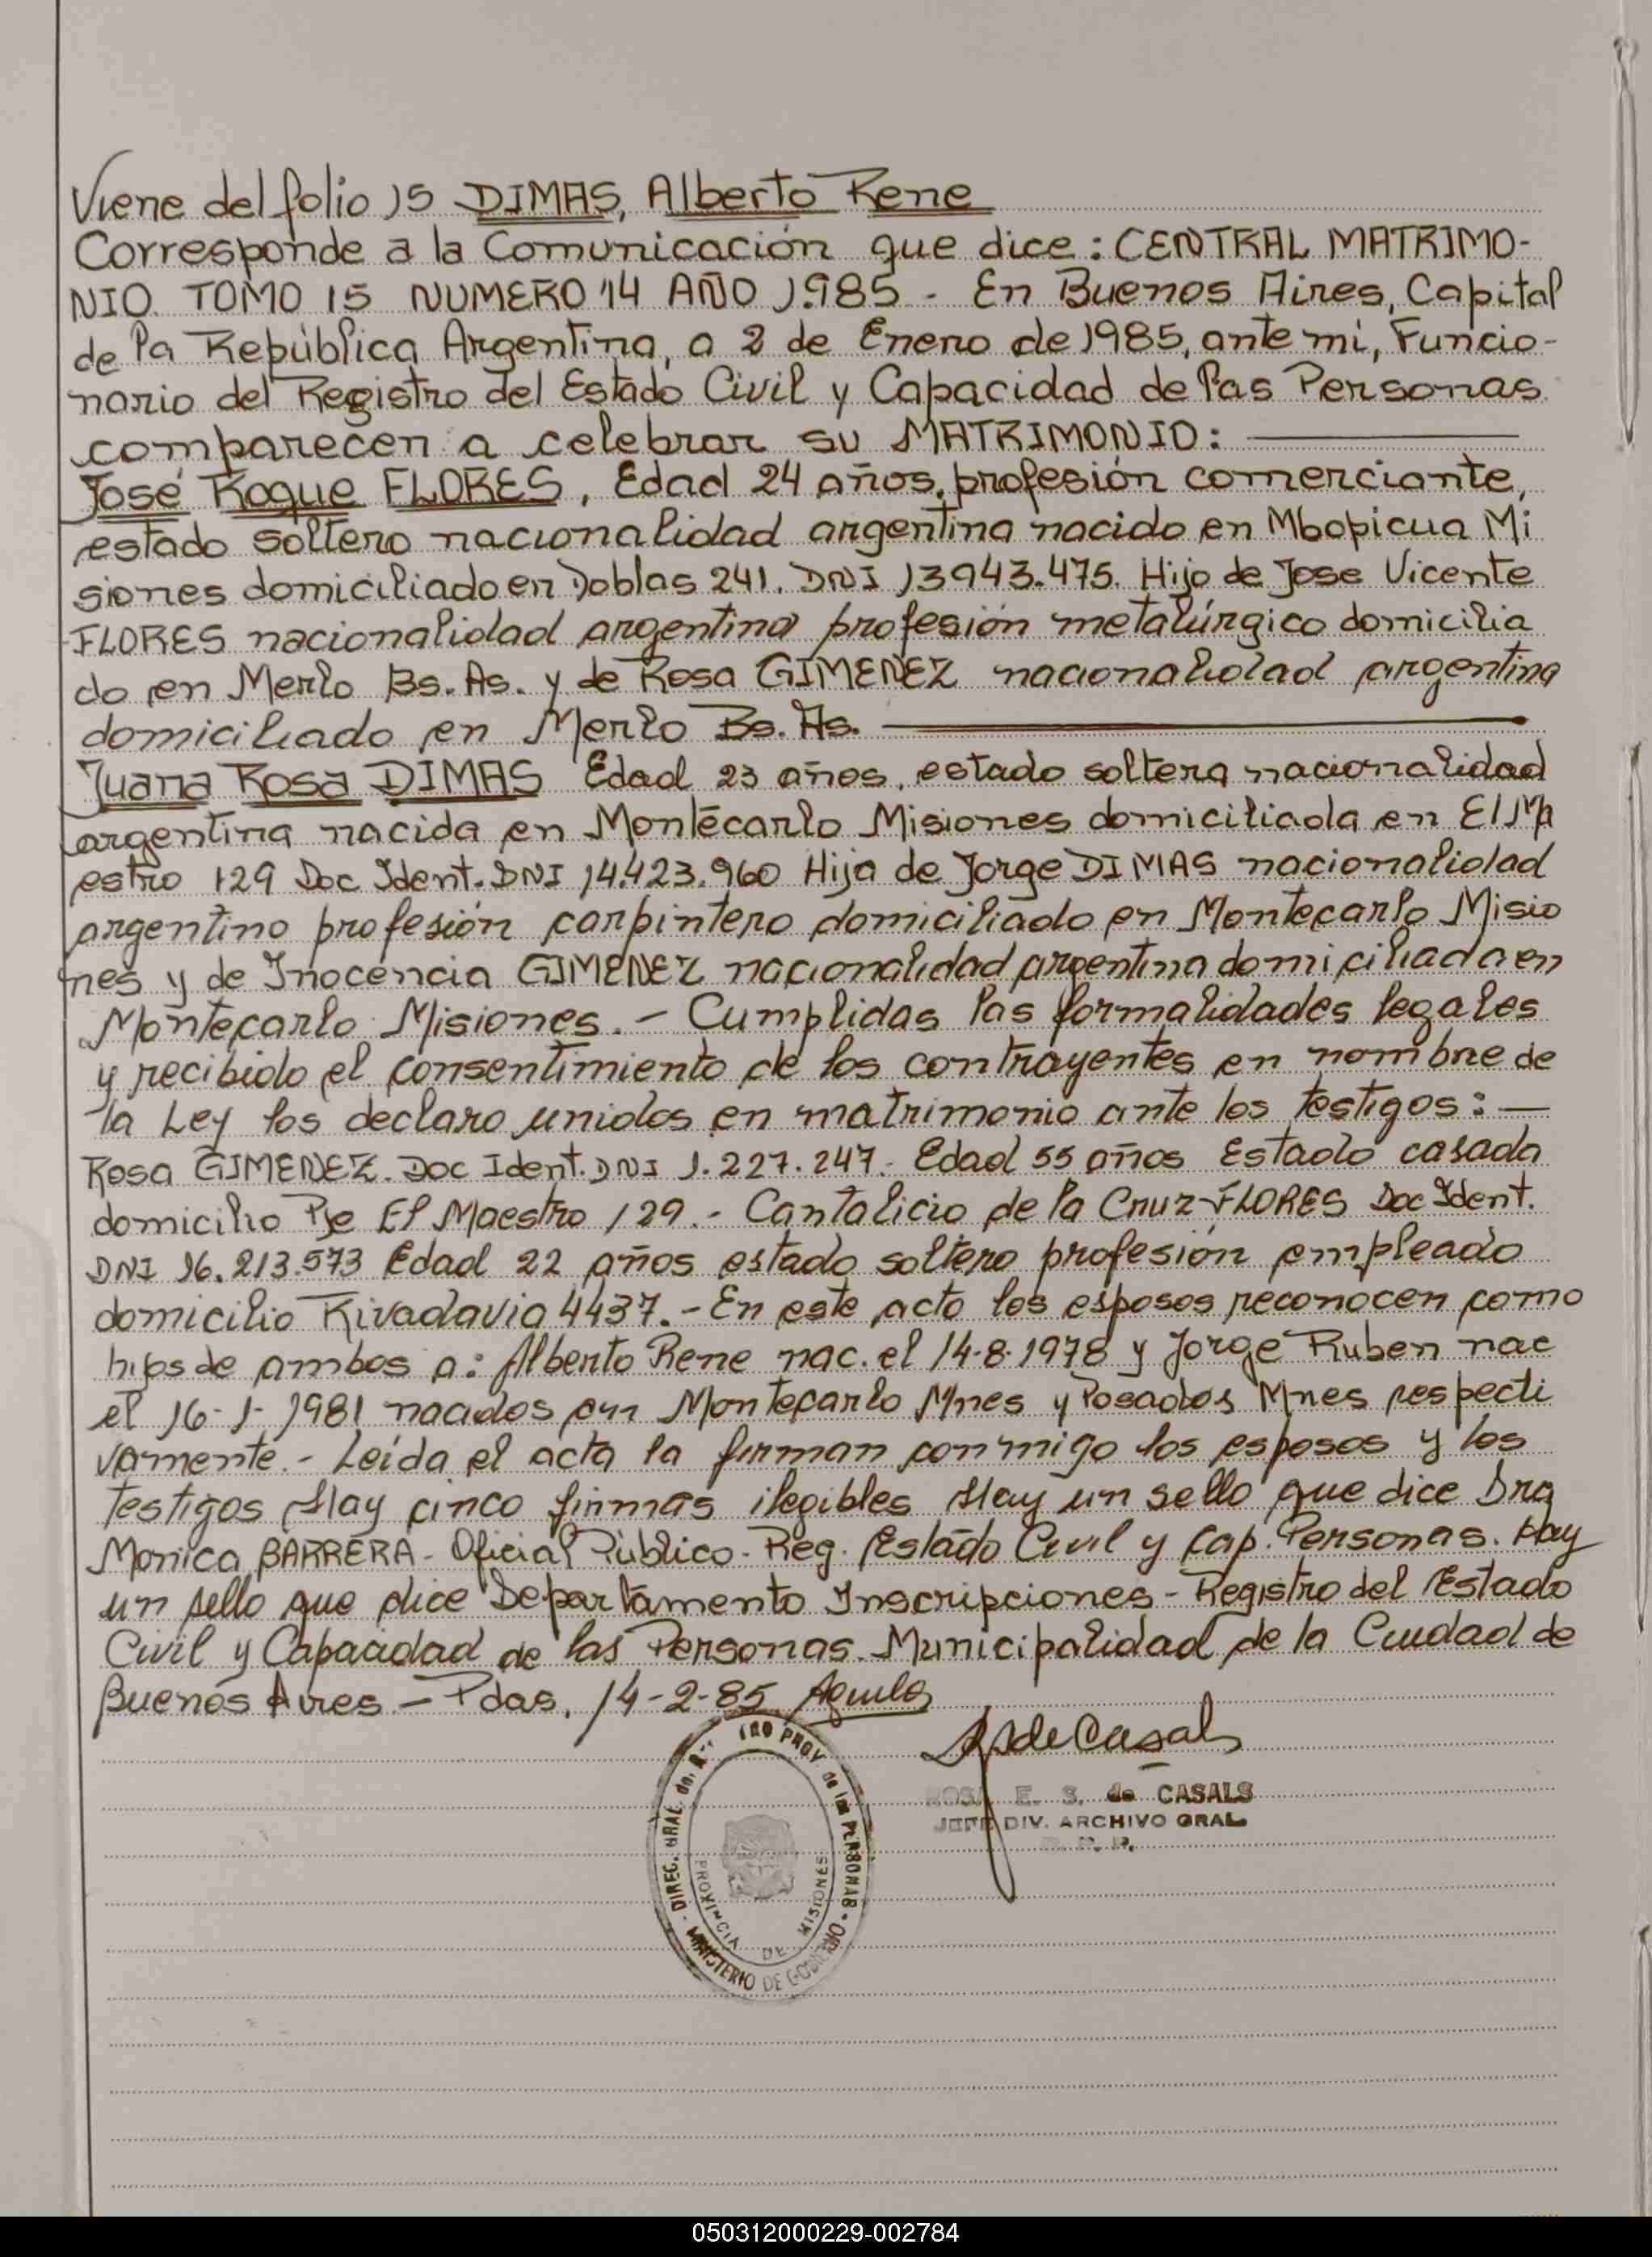 Viene del folio 15 DIMAS, Alberto Rene
Corresponde a la Comunicación que dice: CENTRAL MATRIMO-
NIO. TOMO 15 NUMERO 14 AÑO 1985 - En Buenos Aires, Capital
de la República Argentina, a 2 de Enero de 1985, ante mí, Funcio-
nario del Registro del Estado Civil y Capacidad de las Personas
comparecen a celebrar su MATRIMONIO:
José Roque FLORES, Edad 24 años, profesión comerciante,
estado soltero nacionalidad argentina nacido en Mbopicua Mi
siones domiciliado en Doblas 241. DNI 13943.475. Hijo de Jose Vicente
FLORES nacionalidad argentina profesión metalúrgico domicilia
do en Merlo Bs. As. y de Rosa GIMENEZ nacionalidad argentina
domiciliado en Merlo Bs. As.
Juana Rosa DIMAS Edad 23 años, estado soltera nacionalidad
argentina nacida en Montecarlo Misiones domiciliada en El Ma
estro 129 Doc Ident. DNI 14.423.960 Hija de Jorge DIMAS nacionalidad
argentino profesión carpintero domiciliado en Montecarlo Misio
nes y de Inocencia GIMENEZ nacionalidad argentina domiciliada en
Montecarlo Misiones. - Cumplidas las formalidades legales
y recibido el consentimiento de los contrayentes en nombre de
la Ley los declaro unidos en matrimonio ante los testigos: —
Rosa GIMENEZ. Doc Ident. DNI 1.227.247. Edad 55 años Estado casada
domicilio Pje El Maestro 129. - Cantalicio de la Cruz FLORES Doc Ident.
DNI 16.213.573 Edad 22 años estado soltero profesión empleado
domicilio Rivadavia 4437. - En este acto los esposos reconocen como
hijos de ambos a: Alberto Rene nac. el 14-8-1978 y Jorge Ruben nac
el 16-1-1981 nacidos en Montecarlo Mnes y Posadas Mnes respecti
vamente. - Leída el acta la firman conmigo los esposos y los
testigos Hay cinco firmas ilegibles Hay un sello que dice Dra
Monica BARRERA - Oficial Público - Reg. Estado Civil y Cap. Personas. Hay
un sello que dice Departamento Inscripciones - Registro del Estado
Civil y Capacidad de las Personas. Municipalidad de la Ciudad de
Buenos Aires - Pdas, 14-2-85
ROSA E. S. de CASALS
JEFE DIV. ARCHIVO GRAL
R. P. P.
DIREC. GRAL. del PROV. de las PERSONAS - MINISTERIO DE GOBIERNO
PROVINCIA DE MISIONES
050312000229-002784